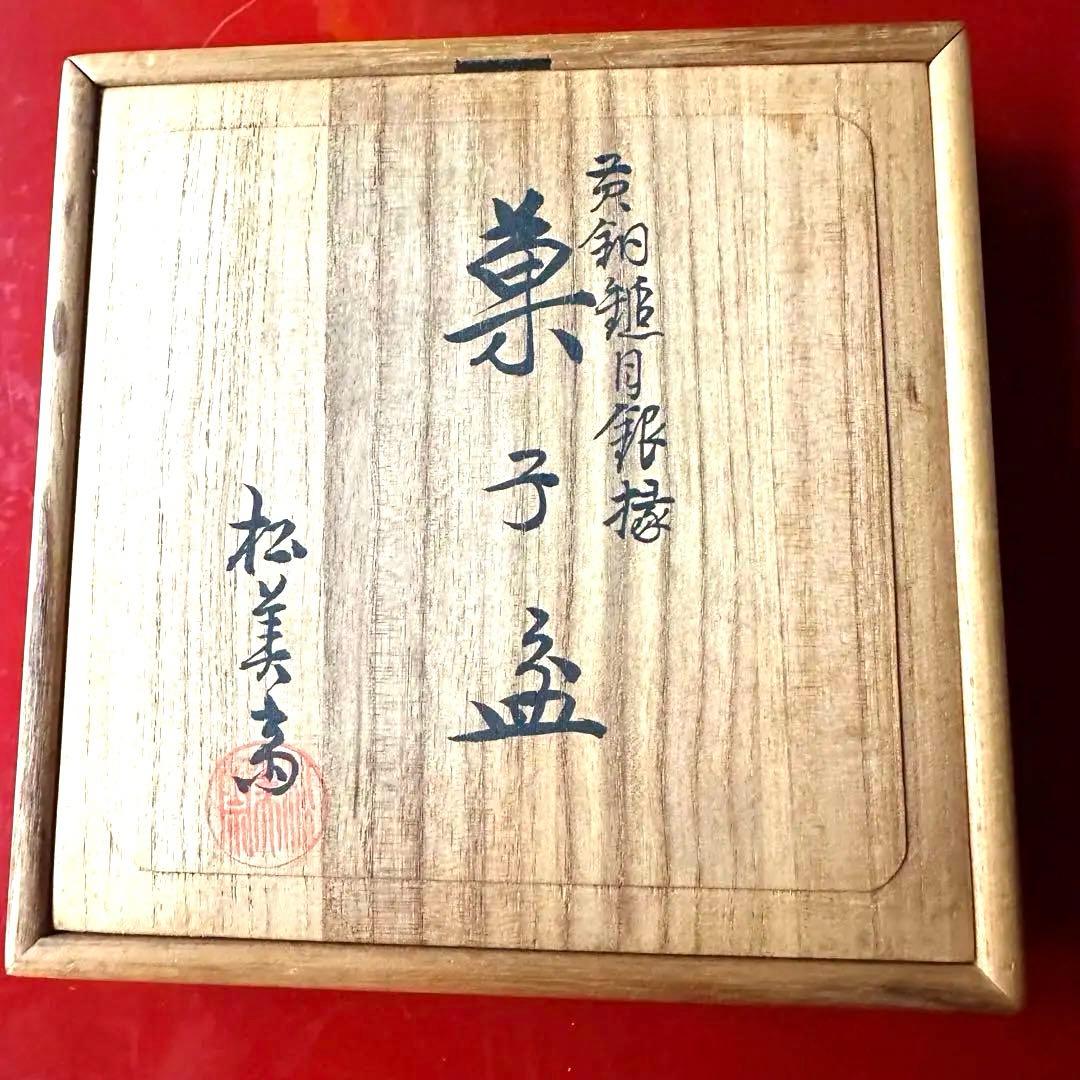 黄銅鎚目銀縁
菓子盆
松美斎